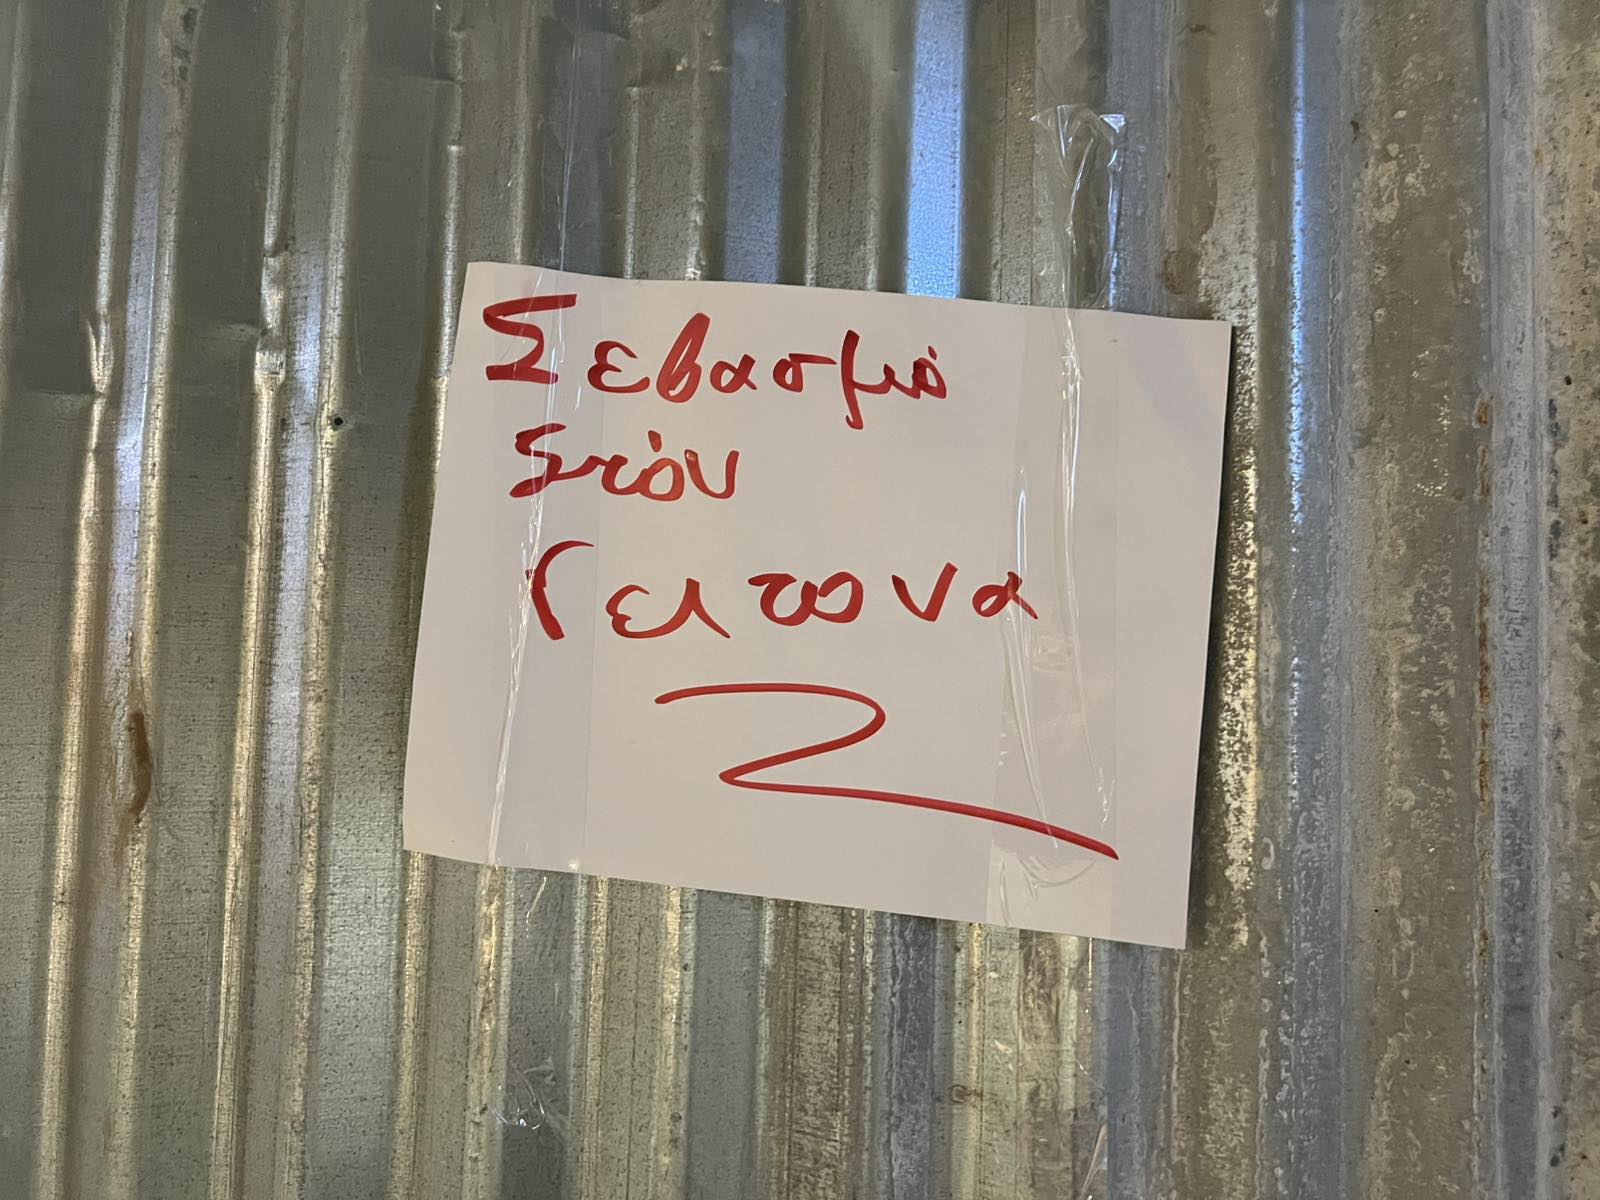 Σεβασμό
Στόν
Γειτονα